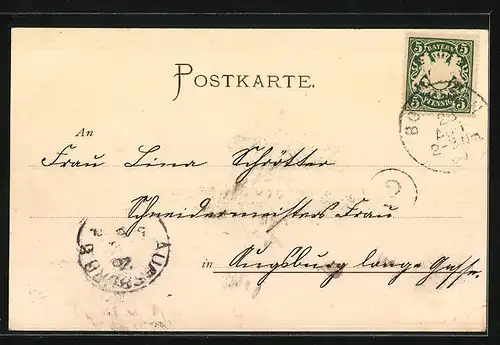 POSTKARTE.
5 BAYERN 5
5 PFENNIG 5
An
Frau Lina Schrötter
Schneidermeisters Frau
in Augsburg lange Gasse.
AUGSBURG